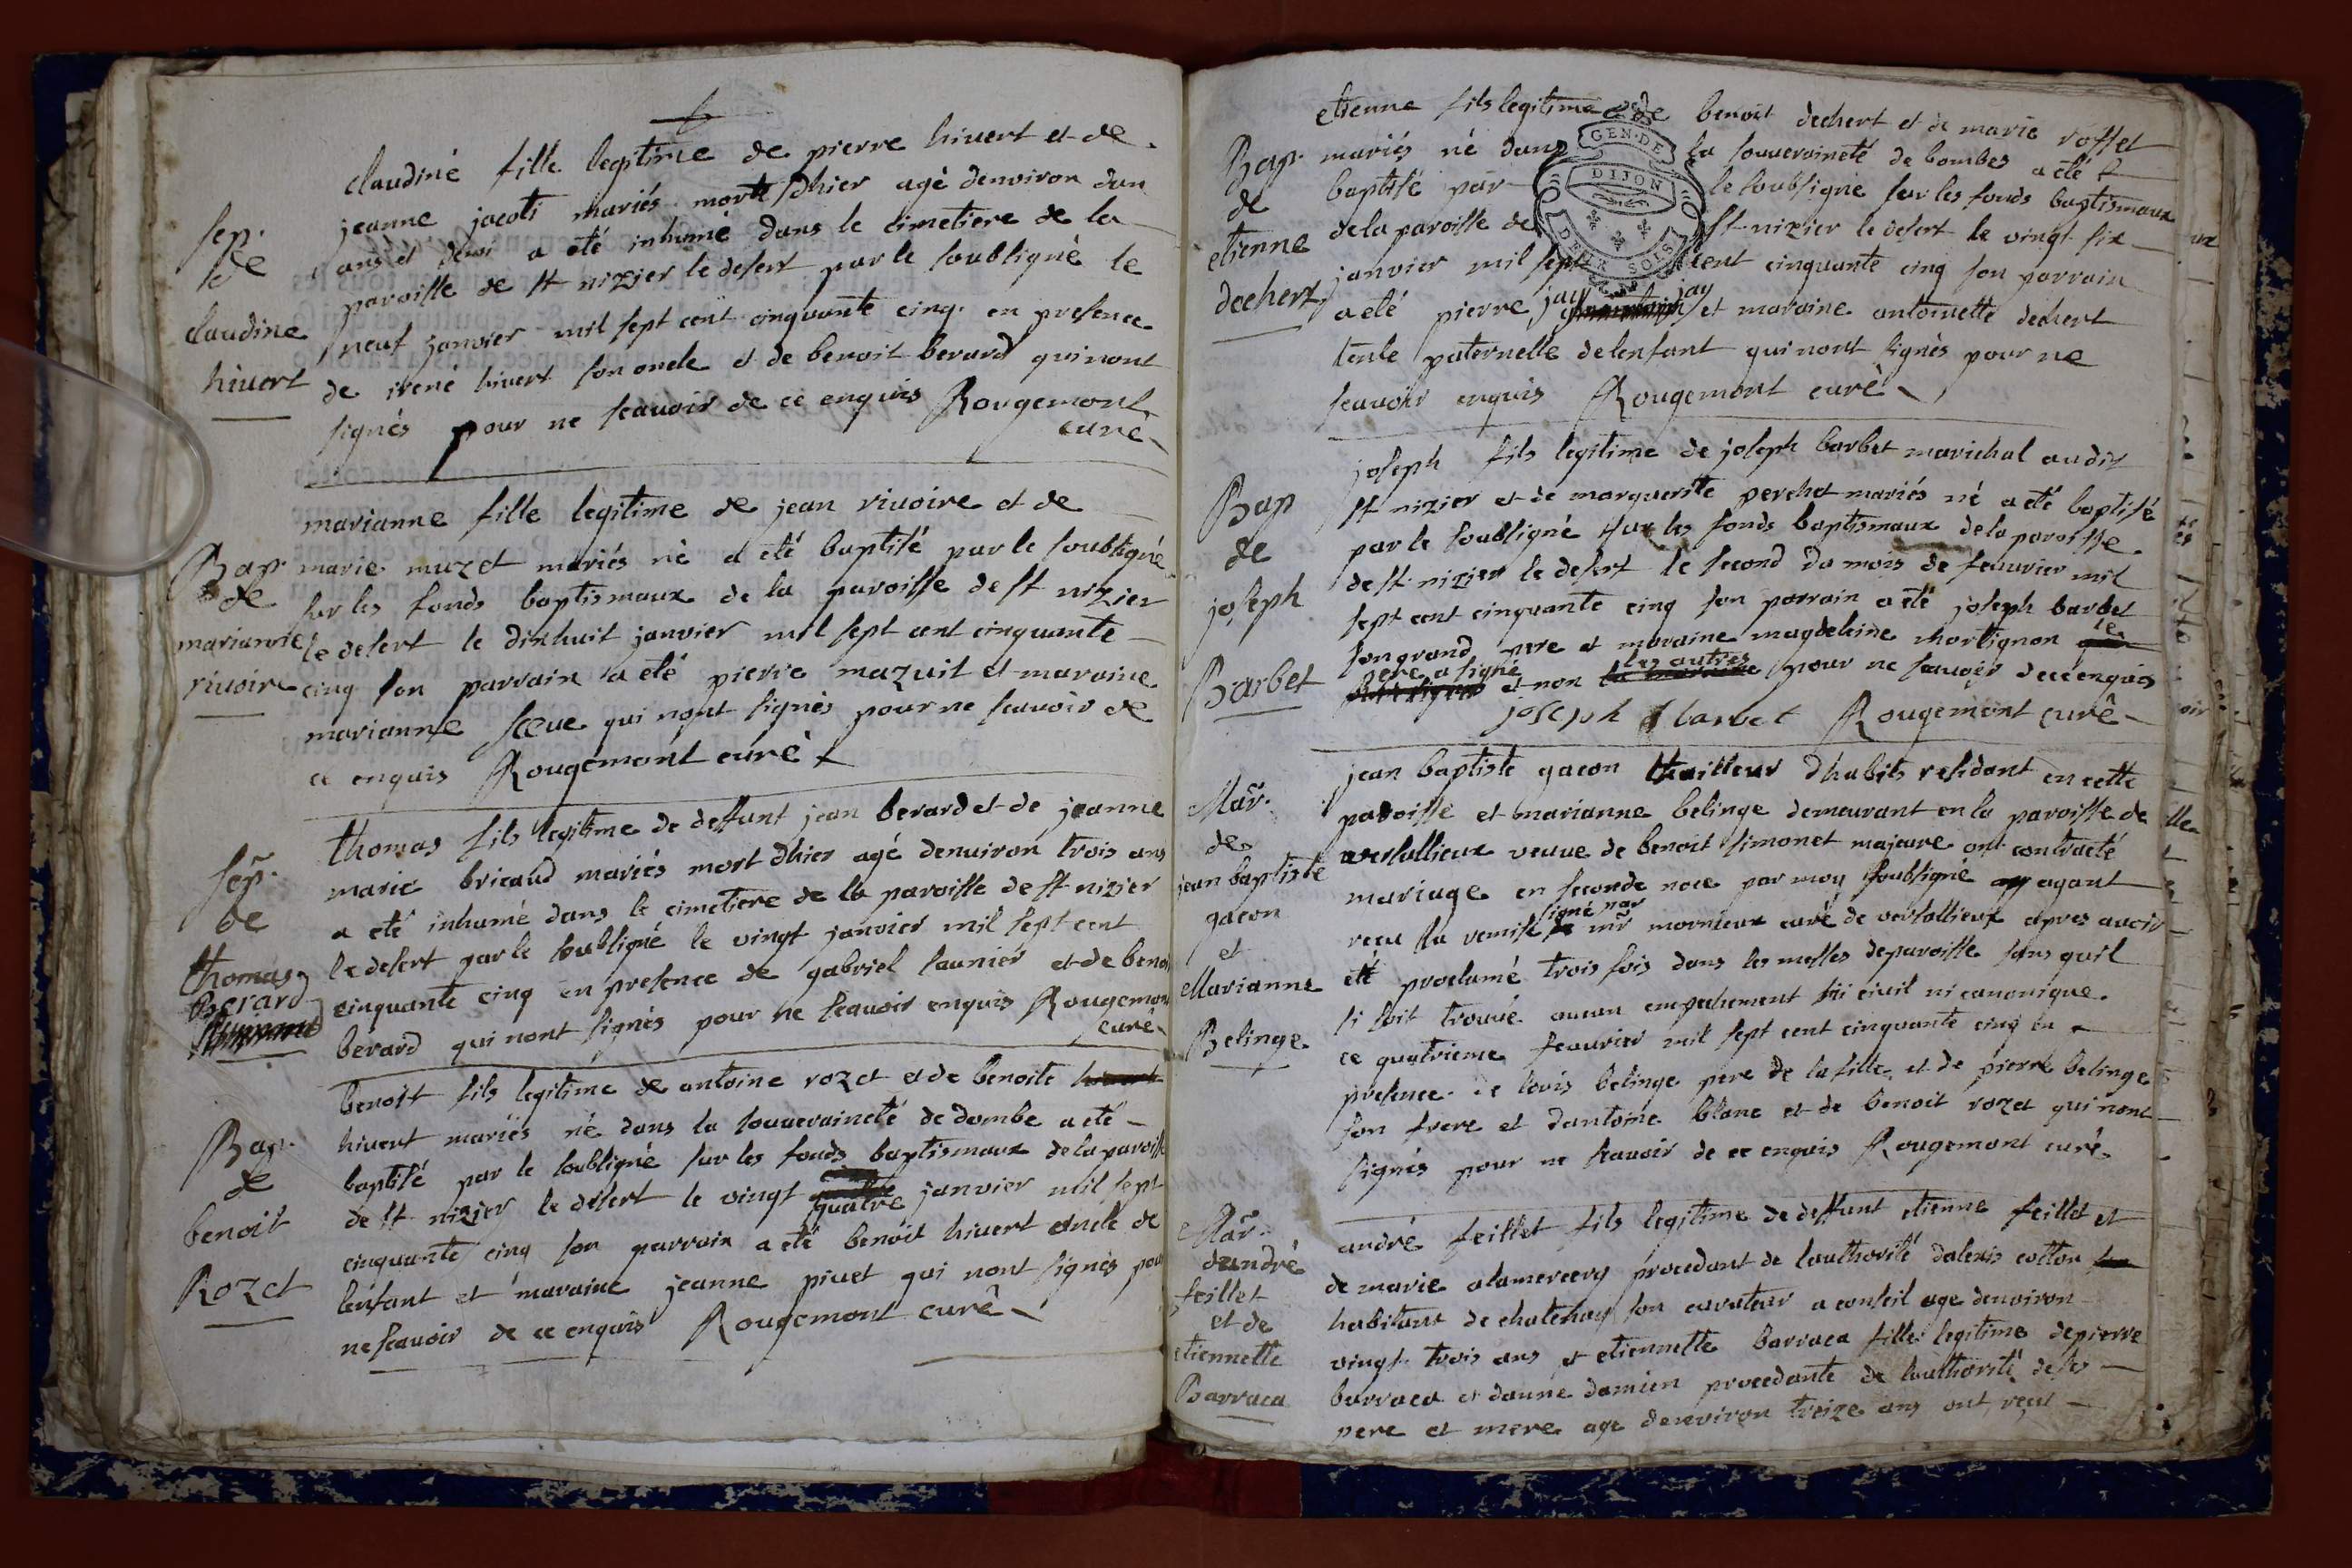 claudine fille legitime de pierre hivert et de
jeanne jacoti mariés morte dhier agé denviron dun
ans et demi a eté inhumé dans le cimetiere de la
paroisse de st nizier le desert par le soubsigné le
neuf janvier mil sept cent cinquante cinq en presence
de irené hivert son oncle et de benoit berard qui nont
signés pour ne scavoir de ce enquis Rougemont
curé
sep.
de
claudine
hivert
marianne fille legitime de jean rivoire et de
marie muzet mariés né a eté baptisé par le soubsigné
sur les fonds baptismaux de la paroisse de st nizier
le desert le dixhuit janvier mil sept cent cinquante
cinq son parrain a eté pierre mazuit et maraine
marianne sœue qui nont signés pour ne scavoir de
ce enquis Rougemont curé
Bap.
de
marianne
rivoire
thomas fils legitime de deffunt jean berard et de jeanne
marie bricaud mariés mort dhier agé denviron trois ans
a eté inhumé dans le cimetiere de la paroisse de st nizier
le desert par le soubsigné le vingt janvier mil sept cent
cinquante cinq en presence de gabriel saunier et de benoi
berard qui nont signés pour ne scavoir enquis Rougemon
curé
sep.
de
thomas
Berard
benoit fils legitime de antoine rozet et de benoite
hivert mariés né dans la souveraineté de dombe a eté
baptisé par le soubsigné sur les fonds baptismaux de la paroisse
de st nizier le desert le vingt quatre janvier mil sept
cinquante cinq son parrain a eté benoit hivert oncle de
lenfant et maraine jeanne pivet qui nont signés pour
ne scavoir de ce enquis Rougemont curé
Bap.
de
benoit
Rozet
etienne fils legitime de benoit dechert et de marie rosset
mariés né dans la souveraineté de bombes a eté
baptisé par le soubsigné sur les fonds baptismaux
de la paroisse de st nizier le desert le vingt six
janvier mil sept cent cinquante cinq son parrain
a eté pierre jay et maraine antoinette dechert
tente paternelle de lenfant qui nont signés pour ne
scavoir enquis Rougemont curé
GEN. DE
DIJON
DEUX SOLS
Bap.
de
etienne
dechert
joseph fils legitime de joseph barbet marichal audit
st nizier et de marguerite perchet mariés né a eté baptisé
par le soubsigné sur les fonds baptismaux de la paroisse
de st nizier le desert le second du mois de feuvrier mil
sept cent cinquante cinq son parrain a eté joseph barbet
son grand pere et maraine magdeleine mortignon le
pere a signé et non les autres pour ne scavoir de ce enquis
joseph barbet Rougemont curé
Bap
de
joseph
Barbet
jean baptiste gacon thailleur dhabits residant en cette
paroisse et marianne belinge demeurant en la paroisse de
versallieux veuve de benoit simonet majeure ont contracté
mariage en seconde noce par moy soubsigné ayant
recu la remise signé par mr mornieux curé de versallieux apres avoir
été proclamé trois fois dans les messes de paroisse sans quil
si soit trouvé aucun empechement ni civil ni canonique
ce quatrieme feuvrier mil sept cent cinquante cinq en
presence de louis belinge pere de la fille et de pierre belinge
son frere et dantoine blanc et de benoit rozet qui nont
signés pour ne scavoir de ce enquis Rougemont curé
Mar.
de
jean baptiste
gacon
et
Marianne
Belinge
andré feillet fils legitime de deffunt etienne feillet et
de marie alamercery procedant de lauthorité dalexis cotton
habitant de chatenay son curateur a conseil age denviron
vingt trois ans et etiennette barraca fille legitime de pierre
barraca et danne damien procedante de lauthorité de ses
pere et mere age denviron treize ans ont reçu
Mar.
dandré
feillet
et de
etiennette
Barraca